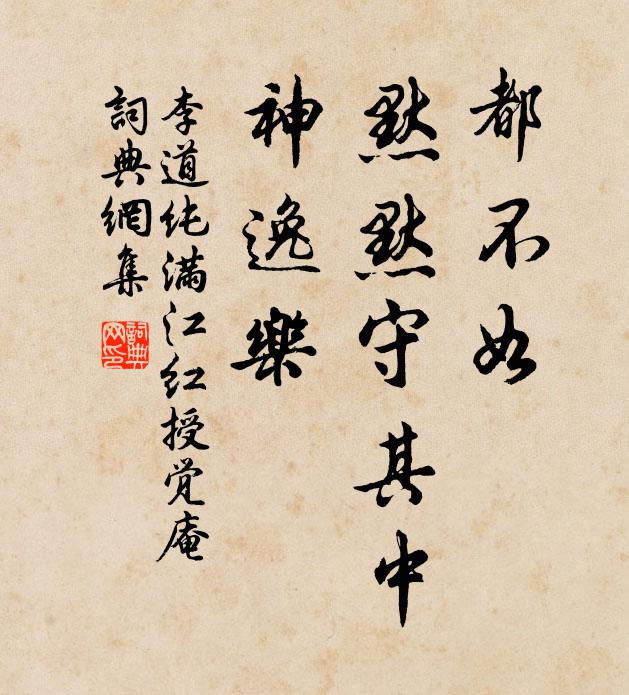 都不如
默默守其中
神逸樂
李道纯滿江红授觉庵
詞典網集
詞典网印